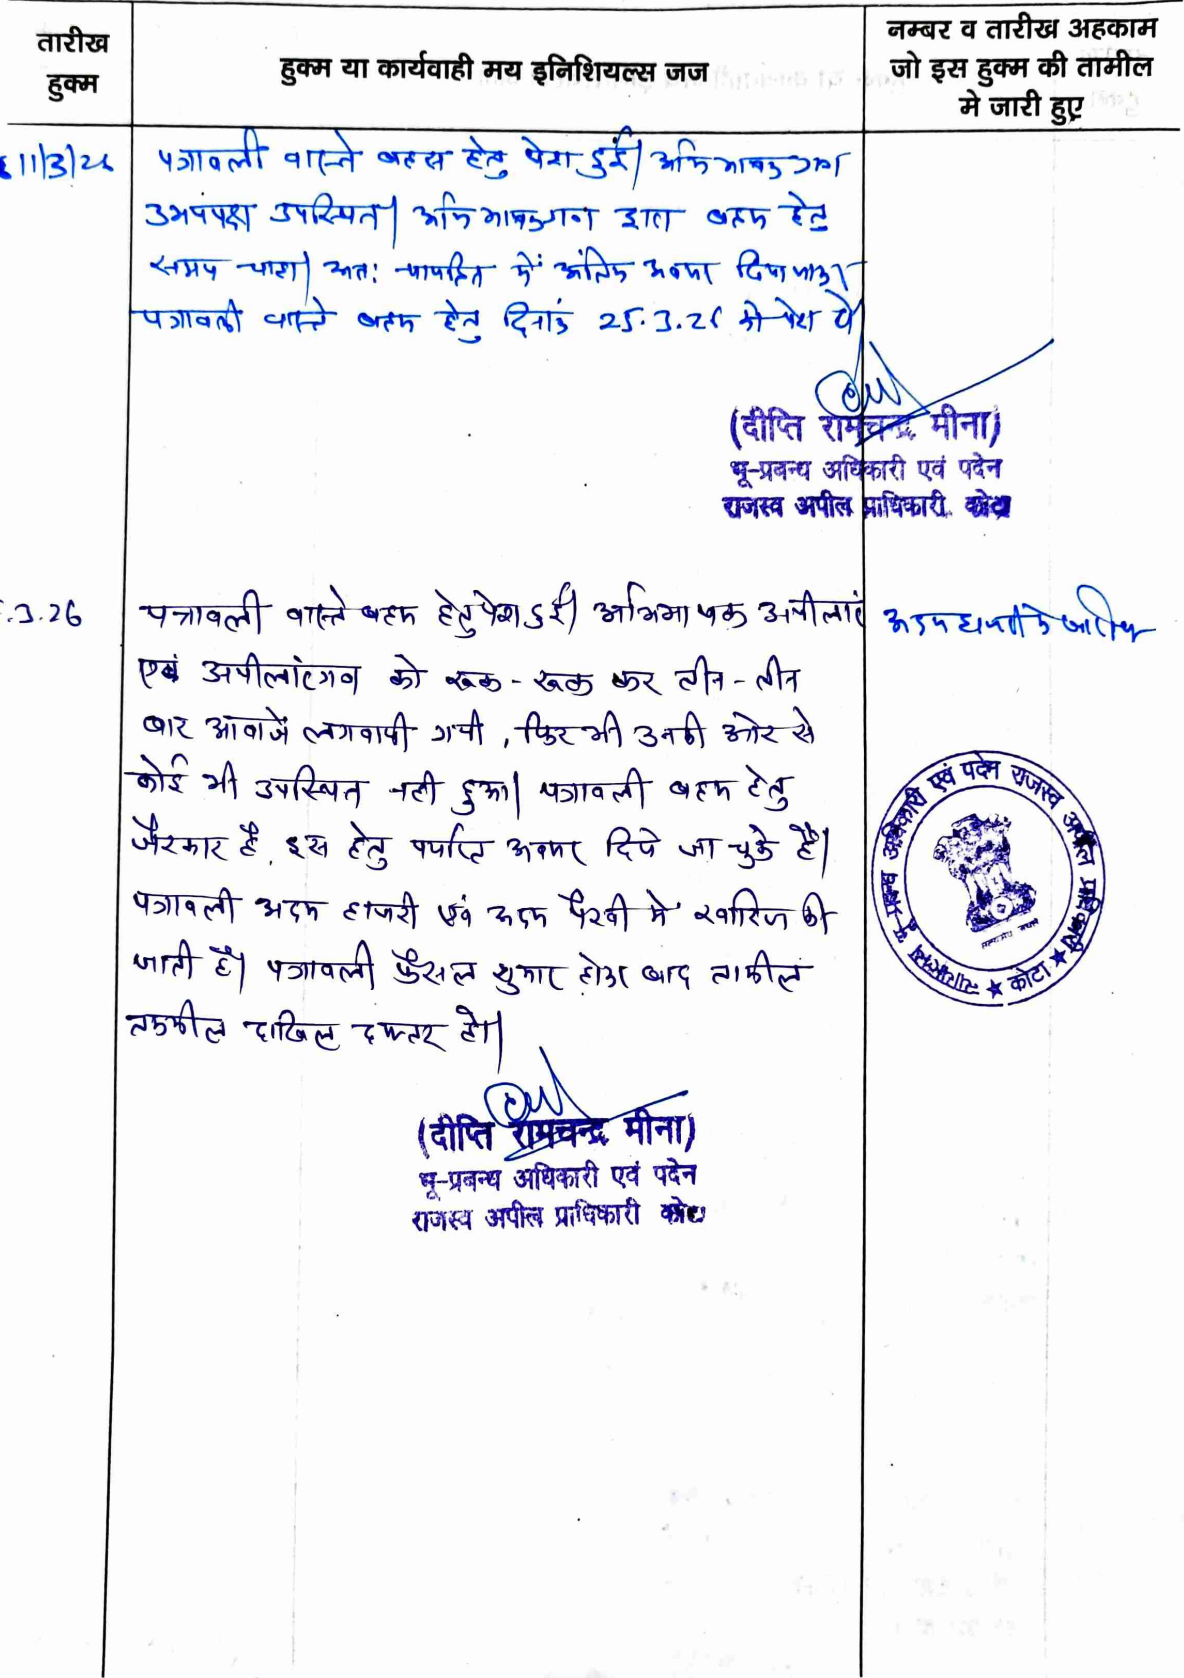 तारीख
हुक्म
हुक्म या कार्यवाही मय इनिशियल्स जज
नम्बर व तारीख अहकाम
जो इस हुक्म की तामील
मे जारी हुए
11/3/26
पत्रावली वास्ते बहस हेतु पेश हुई। अभिभाषकगण
उभयपक्ष उपस्थित। अभिभाषकगण द्वारा बहस हेतु
समय चाहा। अतः न्यायहित में अंतिम अवसर दिया जाता
पत्रावली वास्ते बहस हेतु दिनांक 25.3.26 को पेश हो
(दीप्ति रामचन्द्र मीना)
भू-प्रबन्ध अधिकारी एवं पदेन
राजस्व अपील प्राधिकारी कोटा
.3.26
पत्रावली वास्ते बहस हेतु पेश हुई। अभिभाषक अपीलांट
एवं अपीलांटगण को रूक-रूक कर तीन-तीन
बार आवाजें लगवायी गयी, फिर भी उनकी ओर से
कोई भी उपस्थित नही हुआ। पत्रावली बहस हेतु
जैरकार है, इस हेतु पर्याप्त अवसर दिये जा चुके है।
पत्रावली अदम हाजरी एवं अदम पैरवी मे खारिज की
जाती है। पत्रावली फैसल शुमार होकर बाद तामील
तकमील दाखिल दफ्तर हो।
(दीप्ति रामचन्द्र मीना)
भू-प्रबन्ध अधिकारी एवं पदेन
राजस्व अपील प्राधिकारी कोटा
न्यायालय भू-प्रबन्ध अधिकारी एवं पदेन राजस्व अपील प्राधिकारी ★ कोटा ★